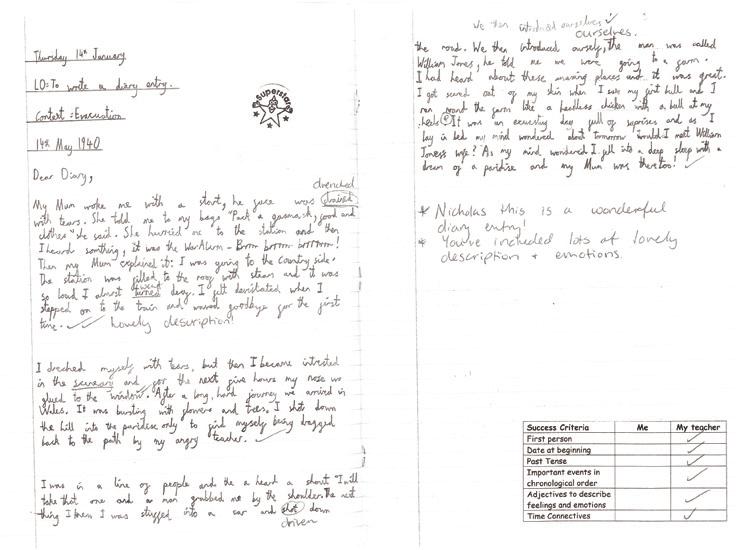 Thursday 14th January
LO: To write a diary entry.
Context: Evacuation
14th May 1940
Superstar
Dear Diary,
drenched
My Mum woke me with a start, he face was drained
with tears. She told me to my bags "Pack a gasmask, food and
clothes" she said. She hurried me to the station and then
I heard somthing, it was the WarAlarm - Brrm brrrm brrrrrm!
Then my Mum explained it: I was going to the country side.
The station was filled to the roof with steam and it was
went
so loud I almost turned deaf. I felt devistated when I
stepped on to the train and waved goodbye for the first
time. Lovely description!
I drenched myself with tears, but then I became intrested
in the and for the next five hours my nose was
glued to the window. After a long, hard journey we arrived in
Wales. It was bursting with flowers and trees. I shot down
the hill into the paridise only to find myself being dragged
back to the path by my angry teacher.
I was in a line of people and the a heard a shout "I will
take that one and a man grabbed me by the shoulder. The next
thing I knew I was stuffed into a car and shot down
driven
We then introduced ourselves
ourselves.
the road. We then introduced ourself, the man was called
William Jones, he told me we were going to a farm.
I had heard about these amazing places and it was great.
I got scared out of my skin when I saw my first bull and I
ran round the farm like a headless chicken with a bull at my
heels. It was an day full of suprises and as I
lay in bed my mind wondered about tomorrow would I meet William
Joness wife? As my mind wondered I fell into a deep sleep with a
dream of a paridise and my Mum was there too!
* Nicholas this is a wonderful
diary entry.
* You've included lots of lovely
description + emotions.
Success Criteria Me My teacher
First person
Date at beginning
Past Tense
Important events in
chronological order
Adjectives to describe
feelings and emotions
Time Connectives